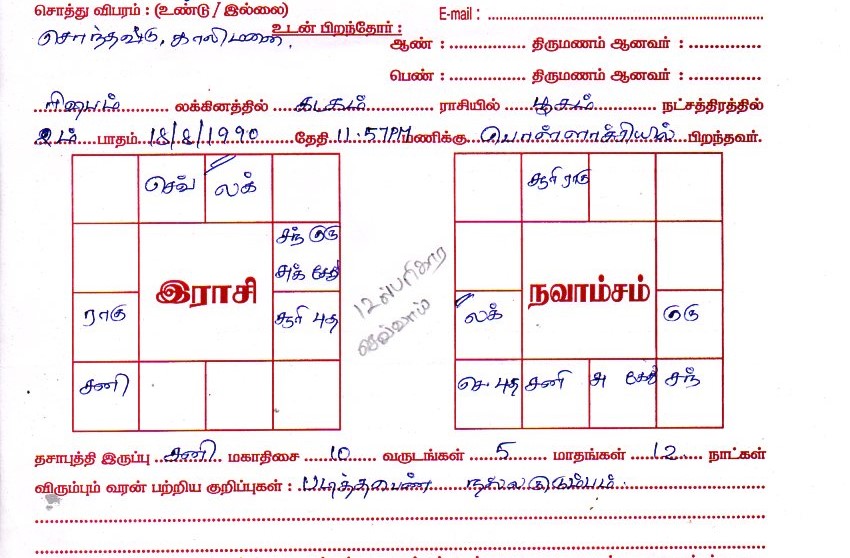 சொத்து விபரம் : (உண்டு / இல்லை) E-mail :
உடன் பிறந்தோர் :
சொந்தவீடு, காலிமனை. ஆண் : திருமணம் ஆனவர் :
பெண் : திருமணம் ஆனவர் :
ரிஷபம் லக்கினத்தில் கடகம் ராசியில் பூசம் நட்சத்திரத்தில்
2ம் பாதம் 18/8/1990 தேதி 11.57PM மணிக்கு பிறந்தவர்.
செவ் லக்
சந் குரு
சுக் கேது
இராசி
ராகு சூரி புத
சனி
12ல் பரிகார
செவ்வாய்
சூரி ராகு
நவாம்சம்
லக் குரு
செ. புத சனி சு கேது சந்
தசாபுத்தி இருப்பு சனி மகாதிசை 10 வருடங்கள் 5 மாதங்கள் 12 நாட்கள்
விரும்பும் வரன் பற்றிய குறிப்புகள் : படித்தபெண் நல்லகுடும்பம்.